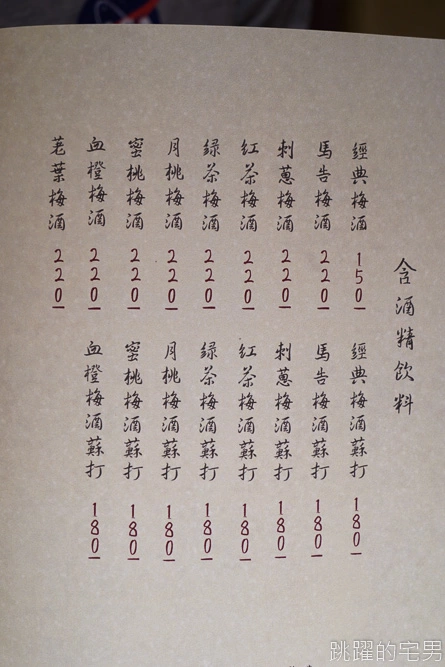 含酒精飲料
經典梅酒 150
馬告梅酒 220
刺蔥梅酒 220
紅茶梅酒 220
綠茶梅酒 220
月桃梅酒 220
蜜桃梅酒 220
血橙梅酒 220
荖葉梅酒 220
經典梅酒蘇打 180
馬告梅酒蘇打 180
刺蔥梅酒蘇打 180
紅茶梅酒蘇打 180
綠茶梅酒蘇打 180
月桃梅酒蘇打 180
蜜桃梅酒蘇打 180
血橙梅酒蘇打 180
跳躍的宅男